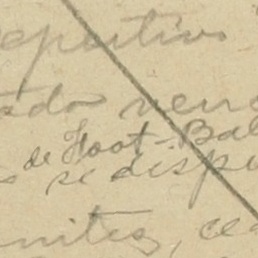 eportivo
ado venc
de Foot-Bal
s se dispu
nites, ce